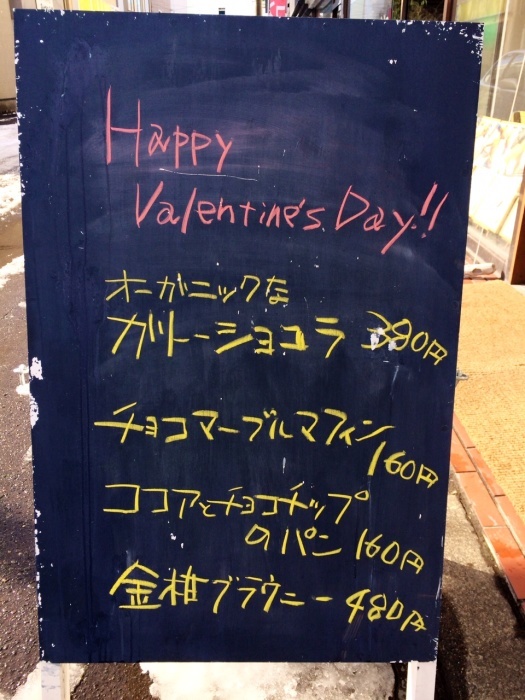 Happy
Valentine's Day!!
オーガニックな
ガトーショコラ 380円
チョコマーブルマフィン
160円
ココアとチョコチップ
のパン 160円
金柑ブラウニー 480円